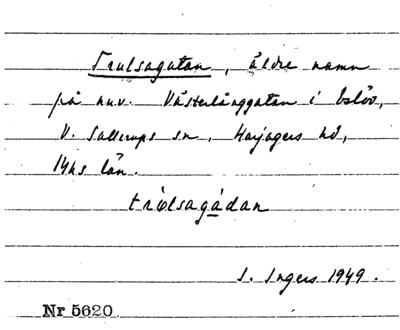 Trulsagatan, äldre namn
på nuv. Västerlånggatan i Eslöv,
V. Sallerups sn, Harjagers hd,
Mhs län.
tríolsagádan
I. Ingers 1949.
Nr 5620